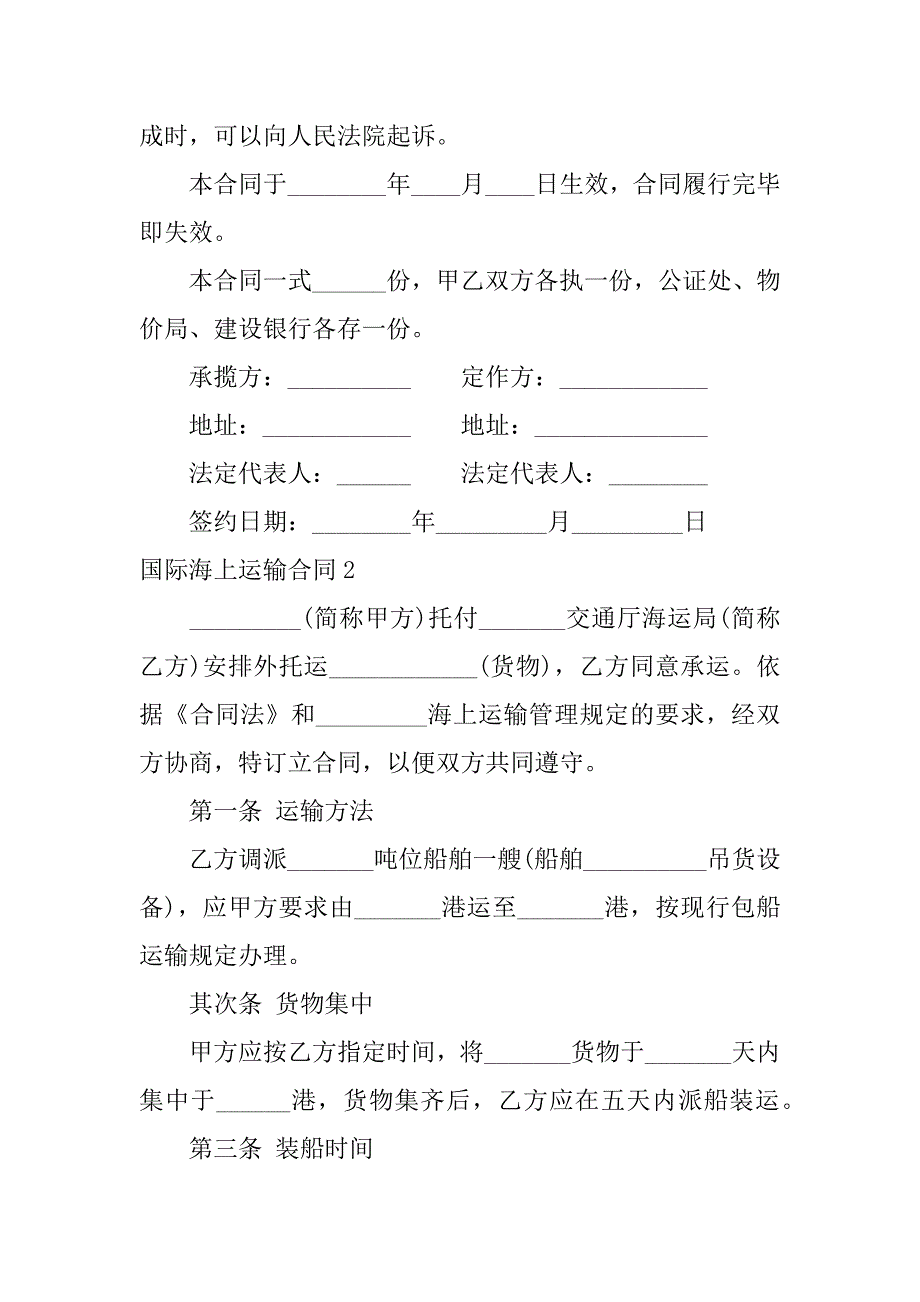 成时，可以向人民法院起诉。
本合同于________年____月____日生效，合同履行完毕
即失效。
本合同一式______份，甲乙双方各执一份，公证处、物
价局、建设银行各存一份。
承揽方：__________　　定作方：____________
地址：____________　　地址：______________
法定代表人：______　　法定代表人：________
签约日期：________年_________月_________日
国际海上运输合同2
_________(简称甲方)托付_______交通厅海运局(简称
乙方)安排外托运____________(货物)，乙方同意承运。依
据《合同法》和_________海上运输管理规定的要求，经双
方协商，特订立合同，以便双方共同遵守。
第一条 运输方法
乙方调派_______吨位船舶一艘(船舶__________吊货设
备)，应甲方要求由_______港运至_______港，按现行包船
运输规定办理。
其次条 货物集中
甲方应按乙方指定时间，将_______货物于_______天内
集中于______港，货物集齐后，乙方应在五天内派船装运。
第三条 装船时间